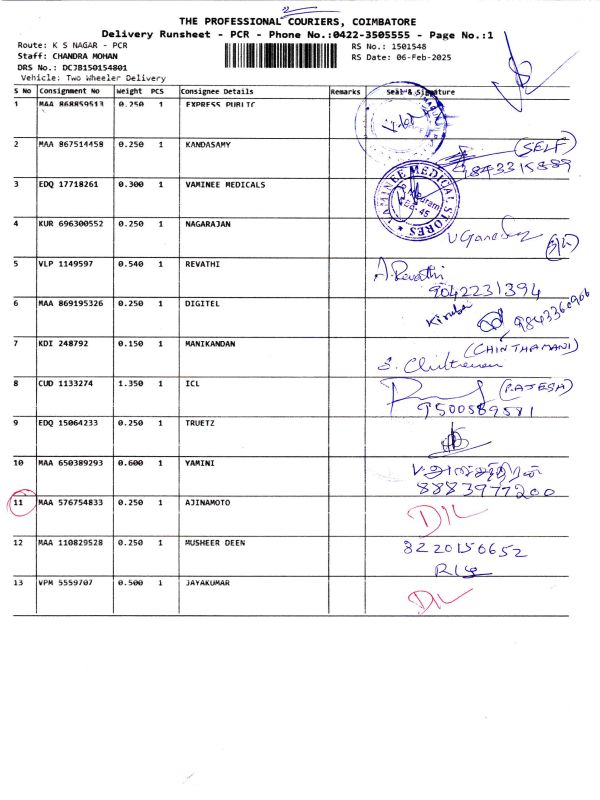 THE PROFESSIONAL COURIERS, COIMBATORE
Delivery Runsheet - PCR - Phone No.:0422-3505555 - Page No.:1
Route: K S NAGAR - PCR RS No.: 1501548
Staff: CHANDRA MOHAN RS Date: 06-Feb-2025
DRS No.: DCJB150154801
Vehicle: Two Wheeler Delivery
S No Consignment No Weight PCS Consignee Details Remarks Seal & Signature
1 MAA 868859513 0.250 1 EXPRESS PUBLIC
2 MAA 867514458 0.250 1 KANDASAMY (SELF)
9843315889
3 EDQ 17718261 0.300 1 VAMINEE MEDICALS VAMINEE MEDICAL STORES
4 KUR 696300552 0.250 1 NAGARAJAN
5 VLP 1149597 0.540 1 REVATHI A.Revathi
9042231394
6 MAA 869195326 0.250 1 DIGITEL Kiruba
7 KDI 248792 0.150 1 MANIKANDAN (CHINTHAMANI)
8 CUD 1133274 1.350 1 ICL (RAJESH)
9500589581
9 EDQ 15064233 0.250 1 TRUETZ
10 MAA 650389293 0.600 1 YAMINI
8883977200
11 MAA 576754833 0.250 1 AJINAMOTO DIL
12 MAA 110829528 0.250 1 MUSHEER DEEN 8220156652
13 VPM 5559707 0.500 1 JAYAKUMAR DIL